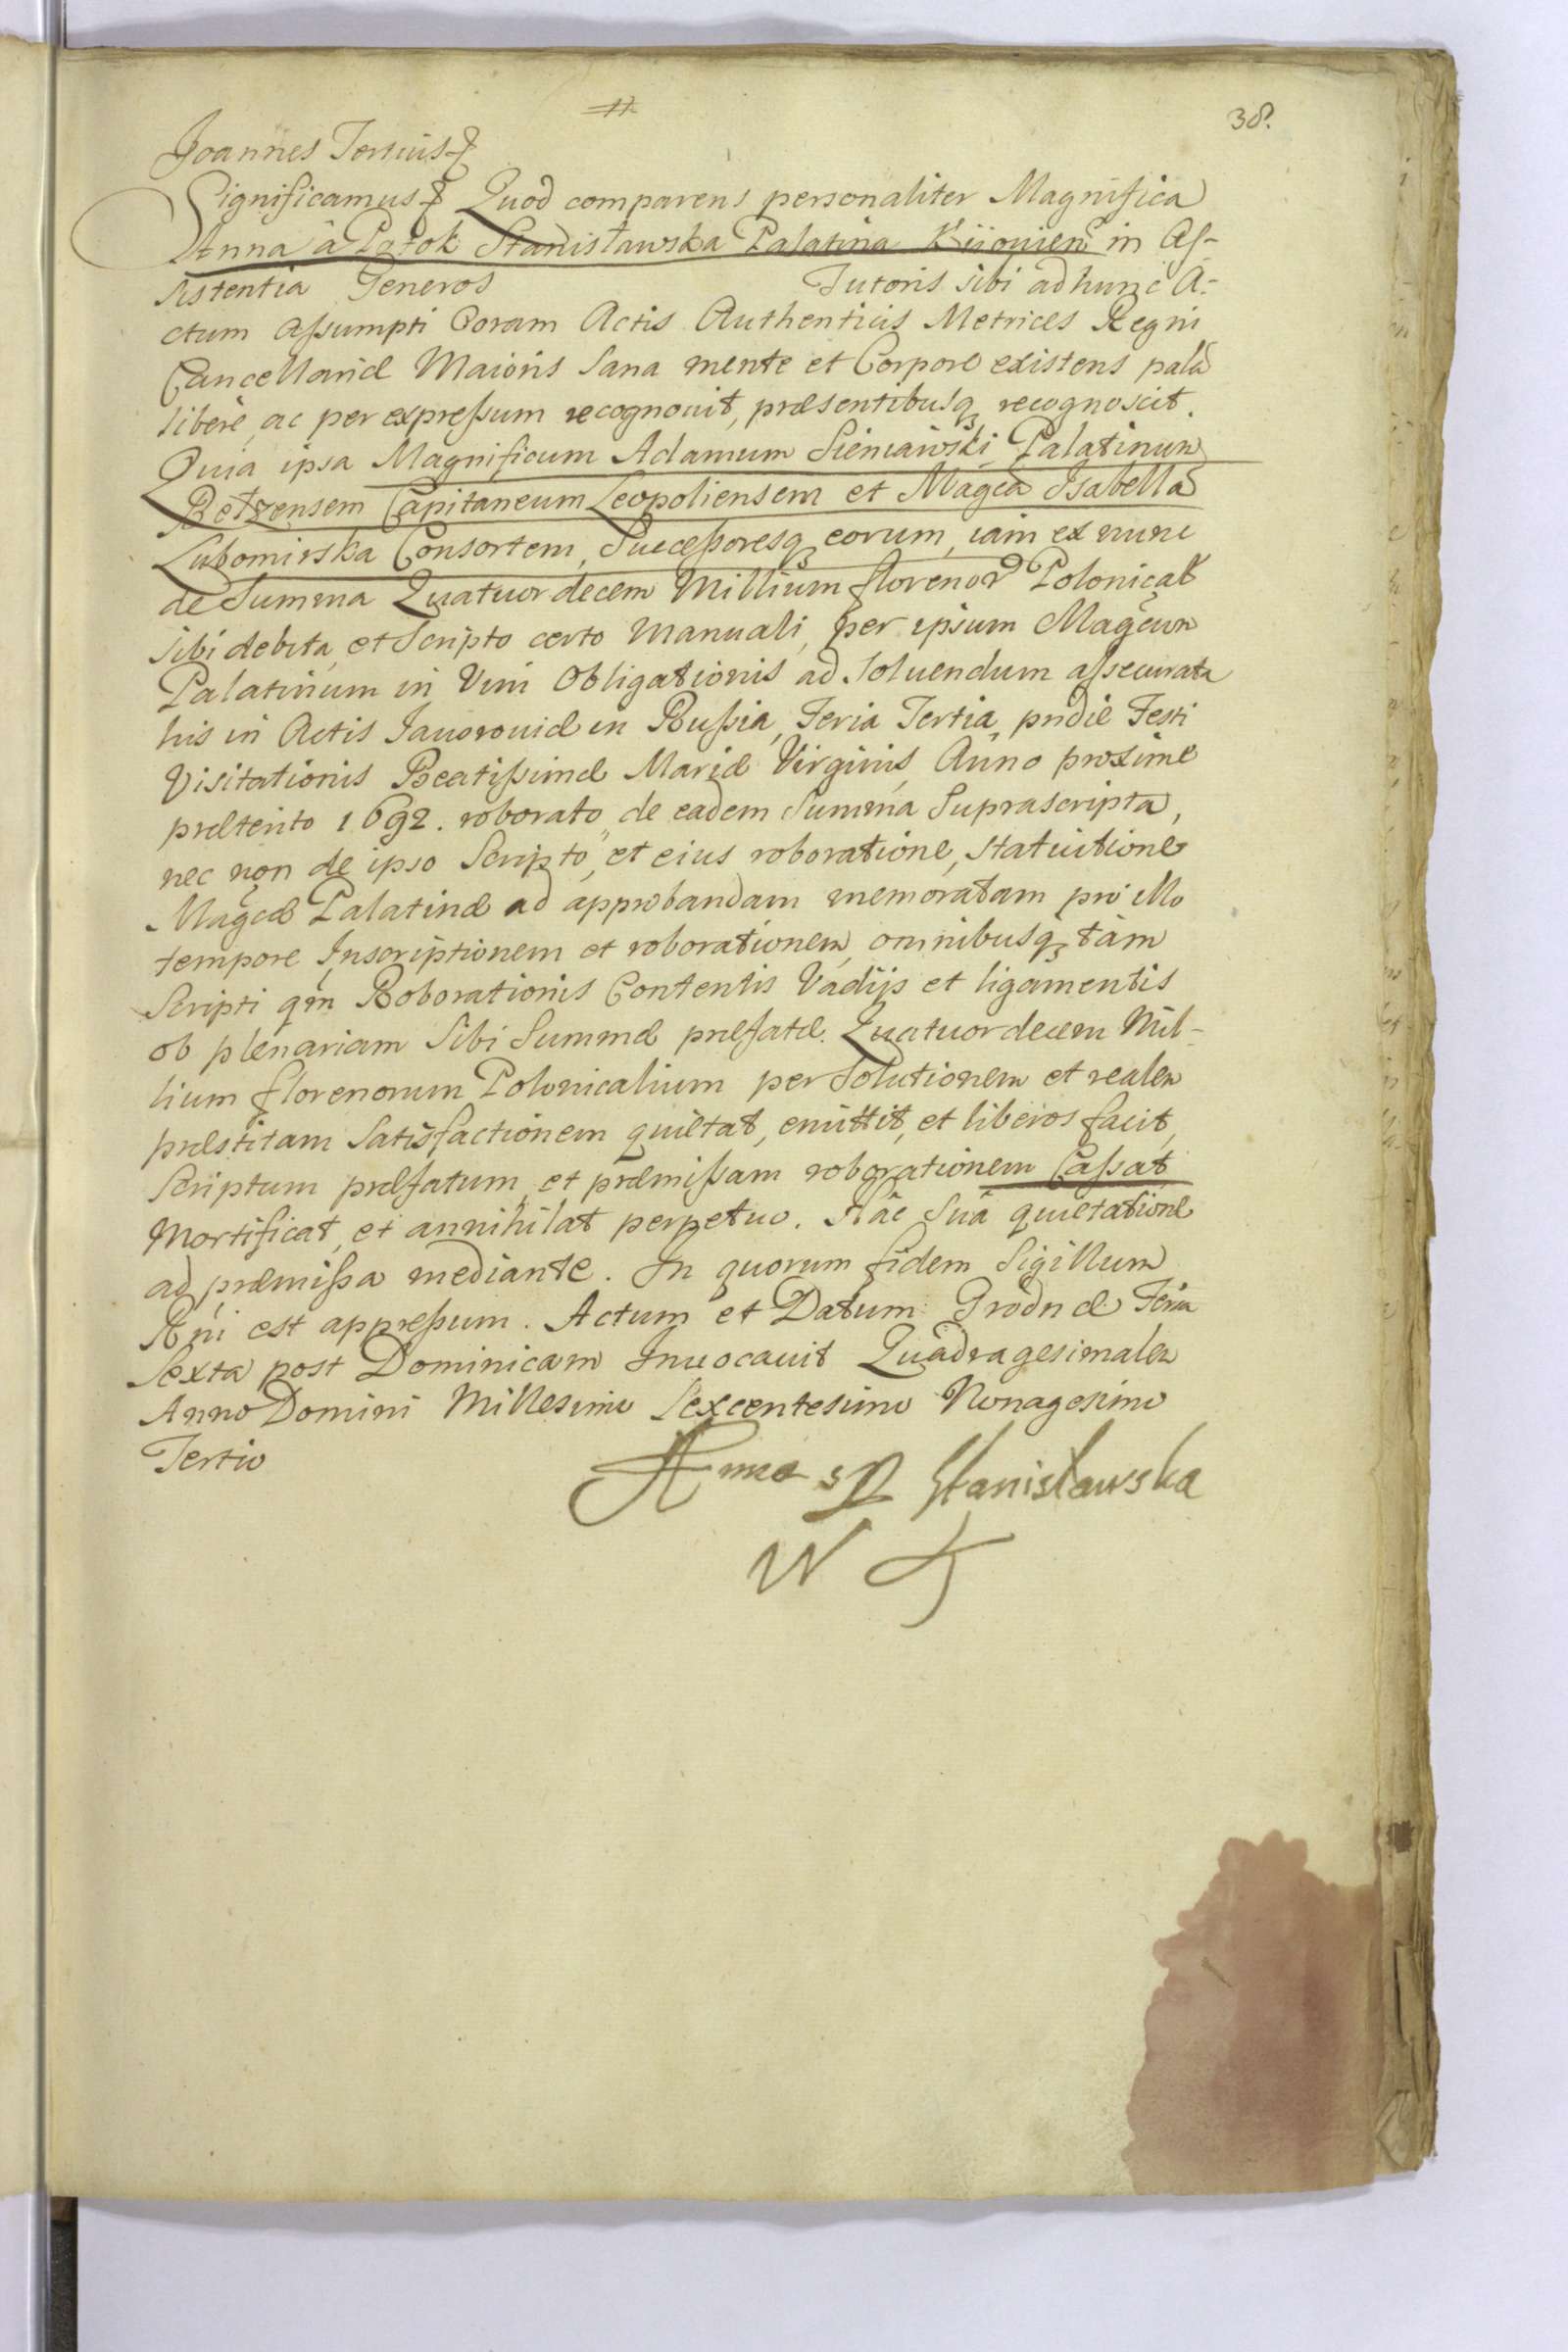 38.
Joannes Tertius
Significamus Quod comparens personaliter Magnifica
Anna à Potok Stanisławska Palatina Kiiouien in Aſ-
sistentia Generos Tutoris sibi ad hunc A-
ctum aſsumpti Coram Actis Authenticis Metrices Regni
Cancellariæ Maioris Sana mente et Corpore existens palã
liberè, ac per expreſsum recognouit, præsentibusq recognoscit.
Quia ipsa Magnificum Adamum Sieniawski Palatinum
Betzensem Capitaneum Leopoliensem et Magcã Isabellã
Lubomirska Consortem, Succeſsoresq eorum, iam ex nunc
de Summa Quatuordecem Millium florenor Polonical
sibi debita, et Scripto certo Manuali, per ipsum Magcum
Palatinum in Vim Obligationis ad Soluendum aſsecurata
his in Actis Jauorouiæ in Ruſsia, Feria Tertia, pridie Festi
Visitationis Beatiſsimæ Mariæ Virginis, Anno proxime
præterito 1692. roborato, de eadem Summa Suprascripta,
nec non de ipso Scripto, et eius roboratione, Statuitione
Magcæ Palatinæ ad approbandam memoratam pro illo
tempore Inscriptionem et roborationem, omnibusq tàm
Scripti qm Roborationis Contentis Vadijs et ligamentis
ob plenariam Sibi Summæ præfatæ. Quatuordecem Mil-
lium florenorum Polonicalium persolutionem et realem
præstitam Satisfactionem quietat, emittit, et liberos facit,
Scriptum præfatum, et præmiſsam roborationem Caſsat
Mortificat, et annihilat perpetuo. Hâc Suâ quietatione
ad præmiſsa mediante. In quorum fidem Sigillum
Rni est appreſsum. Actum et Datum Grodnæ Feria
Sexta post Dominicam Inuocauit Quadragesimalem
Anno Domini Millesimo Sexcentesimo Nonagesimo
Tertio
Anna z P Stanisławska
W K